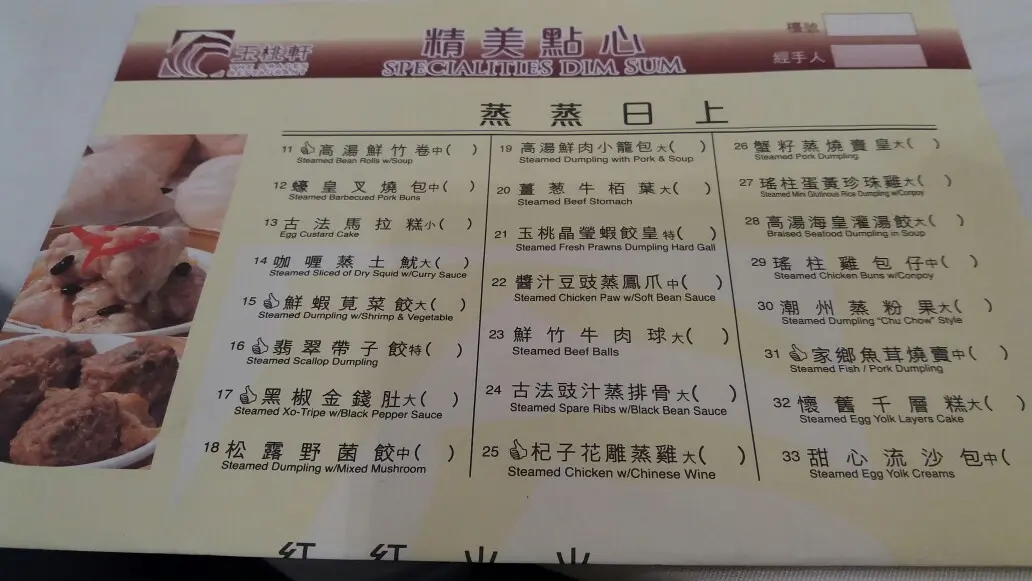 玉桃軒
精美點心
SPECIALITIES DIM SUM
檯號
經手人
蒸蒸日上
11 高湯鮮竹卷中( )
Steamed Bean Rolls w/Soup
12 蠔皇叉燒包中( )
Steamed Barbecued Pork Buns
13 古法馬拉糕小( )
Egg Custard Cake
14 咖喱蒸土魷大( )
Steamed Sliced of Dry Squid w/Curry Sauce
15 鮮蝦莧菜餃大( )
Steamed Dumpling w/Shrimp & Vegetable
16 翡翠帶子餃特( )
Steamed Scallop Dumpling
17 黑椒金錢肚大( )
Steamed Xo-Tripe w/Black Pepper Sauce
18 松露野菌餃中( )
Steamed Dumpling w/Mixed Mushroom
19 高湯鮮肉小籠包大( )
Steamed Dumpling with Pork & Soup
20 薑葱牛栢葉大( )
Steamed Beef Stomach
21 玉桃晶瑩蝦餃皇特( )
Steamed Fresh Prawns Dumpling Hard Gall
22 醬汁豆豉蒸鳳爪中( )
Steamed Chicken Paw w/Soft Bean Sauce
23 鮮竹牛肉球大( )
Steamed Beef Balls
24 古法豉汁蒸排骨大( )
Steamed Spare Ribs w/Black Bean Sauce
25 杞子花雕蒸雞大( )
Steamed Chicken w/Chinese Wine
26 蟹籽蒸燒賣皇大( )
Steamed Pork Dumpling
27 瑤柱蛋黃珍珠雞大( )
Steamed Mini Glutinous Rice Dumpling w/Conpoy
28 高湯海皇灌湯餃大( )
Braised Seafood Dumpling in Soup
29 瑤柱雞包仔中( )
Steamed Chicken Buns w/Conpoy
30 潮州蒸粉果大( )
Steamed Dumpling "Chu Chow" Style
31 家鄉魚茸燒賣中( )
Steamed Fish / Pork Dumpling
32 懷舊千層糕大( )
Steamed Egg Yolk Layers Cake
33 甜心流沙包中( )
Steamed Egg Yolk Creams